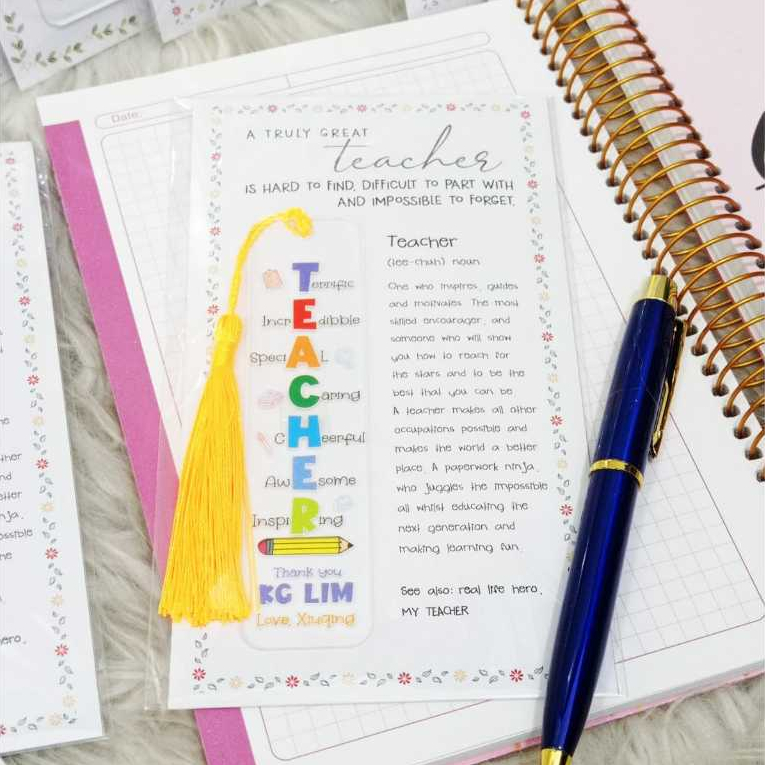 Date:
A TRULY GREAT
teacher
IS HARD TO FIND, DIFFICULT TO PART WITH
AND IMPOSSIBLE TO FORGET.
Terrific
IncrEdibble
SpeciAL
Caring
CHeerful
AwEsome
InspiRing
Thank you
KC LIM
Love, Xiuqing
Teacher
(tee-chuh) noun
One who inspires, guides
and motivates. The most
skilled encourager, and
someone who will show
you how to reach for
the stars and to be the
best that you can be.
A teacher makes all other
occupations possible and
makes the world a better
place. A paperwork ninja,
who juggles the impossible
all whilst educating the
next generation and
making learning fun.
See also: real life hero,
MY TEACHER